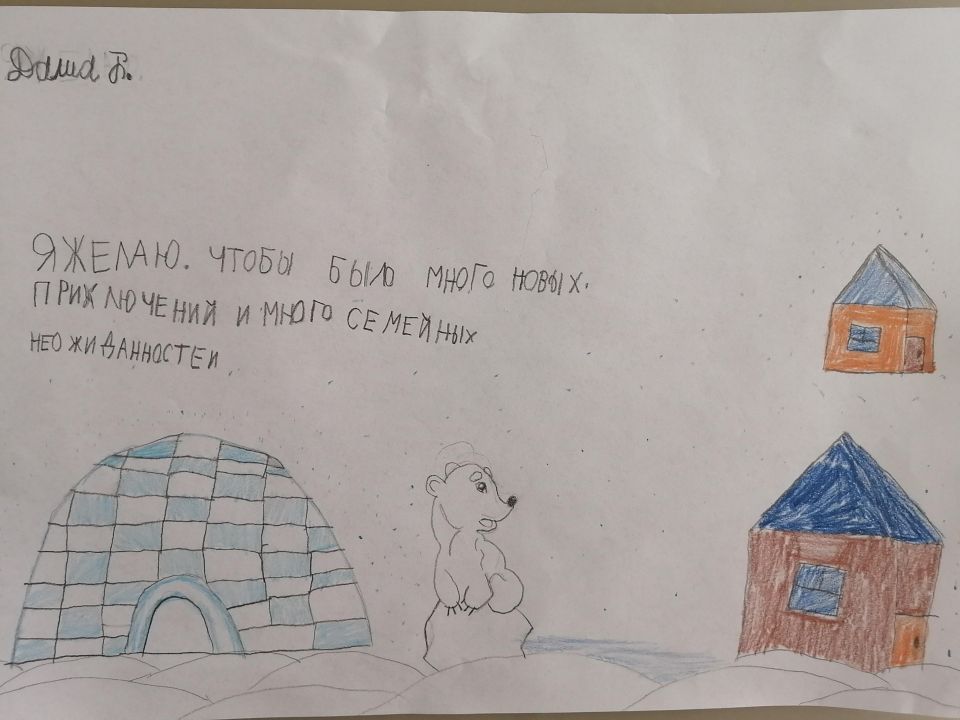 Даша В.
Я ЖЕЛАЮ. ЧТОБЫ БЫЛО МНОГО НОВЫХ.
ПРИКЛЮЧЕНИЙ И МНОГО СЕМЕЙНЫХ
НЕОЖИДАННОСТЕЙ.